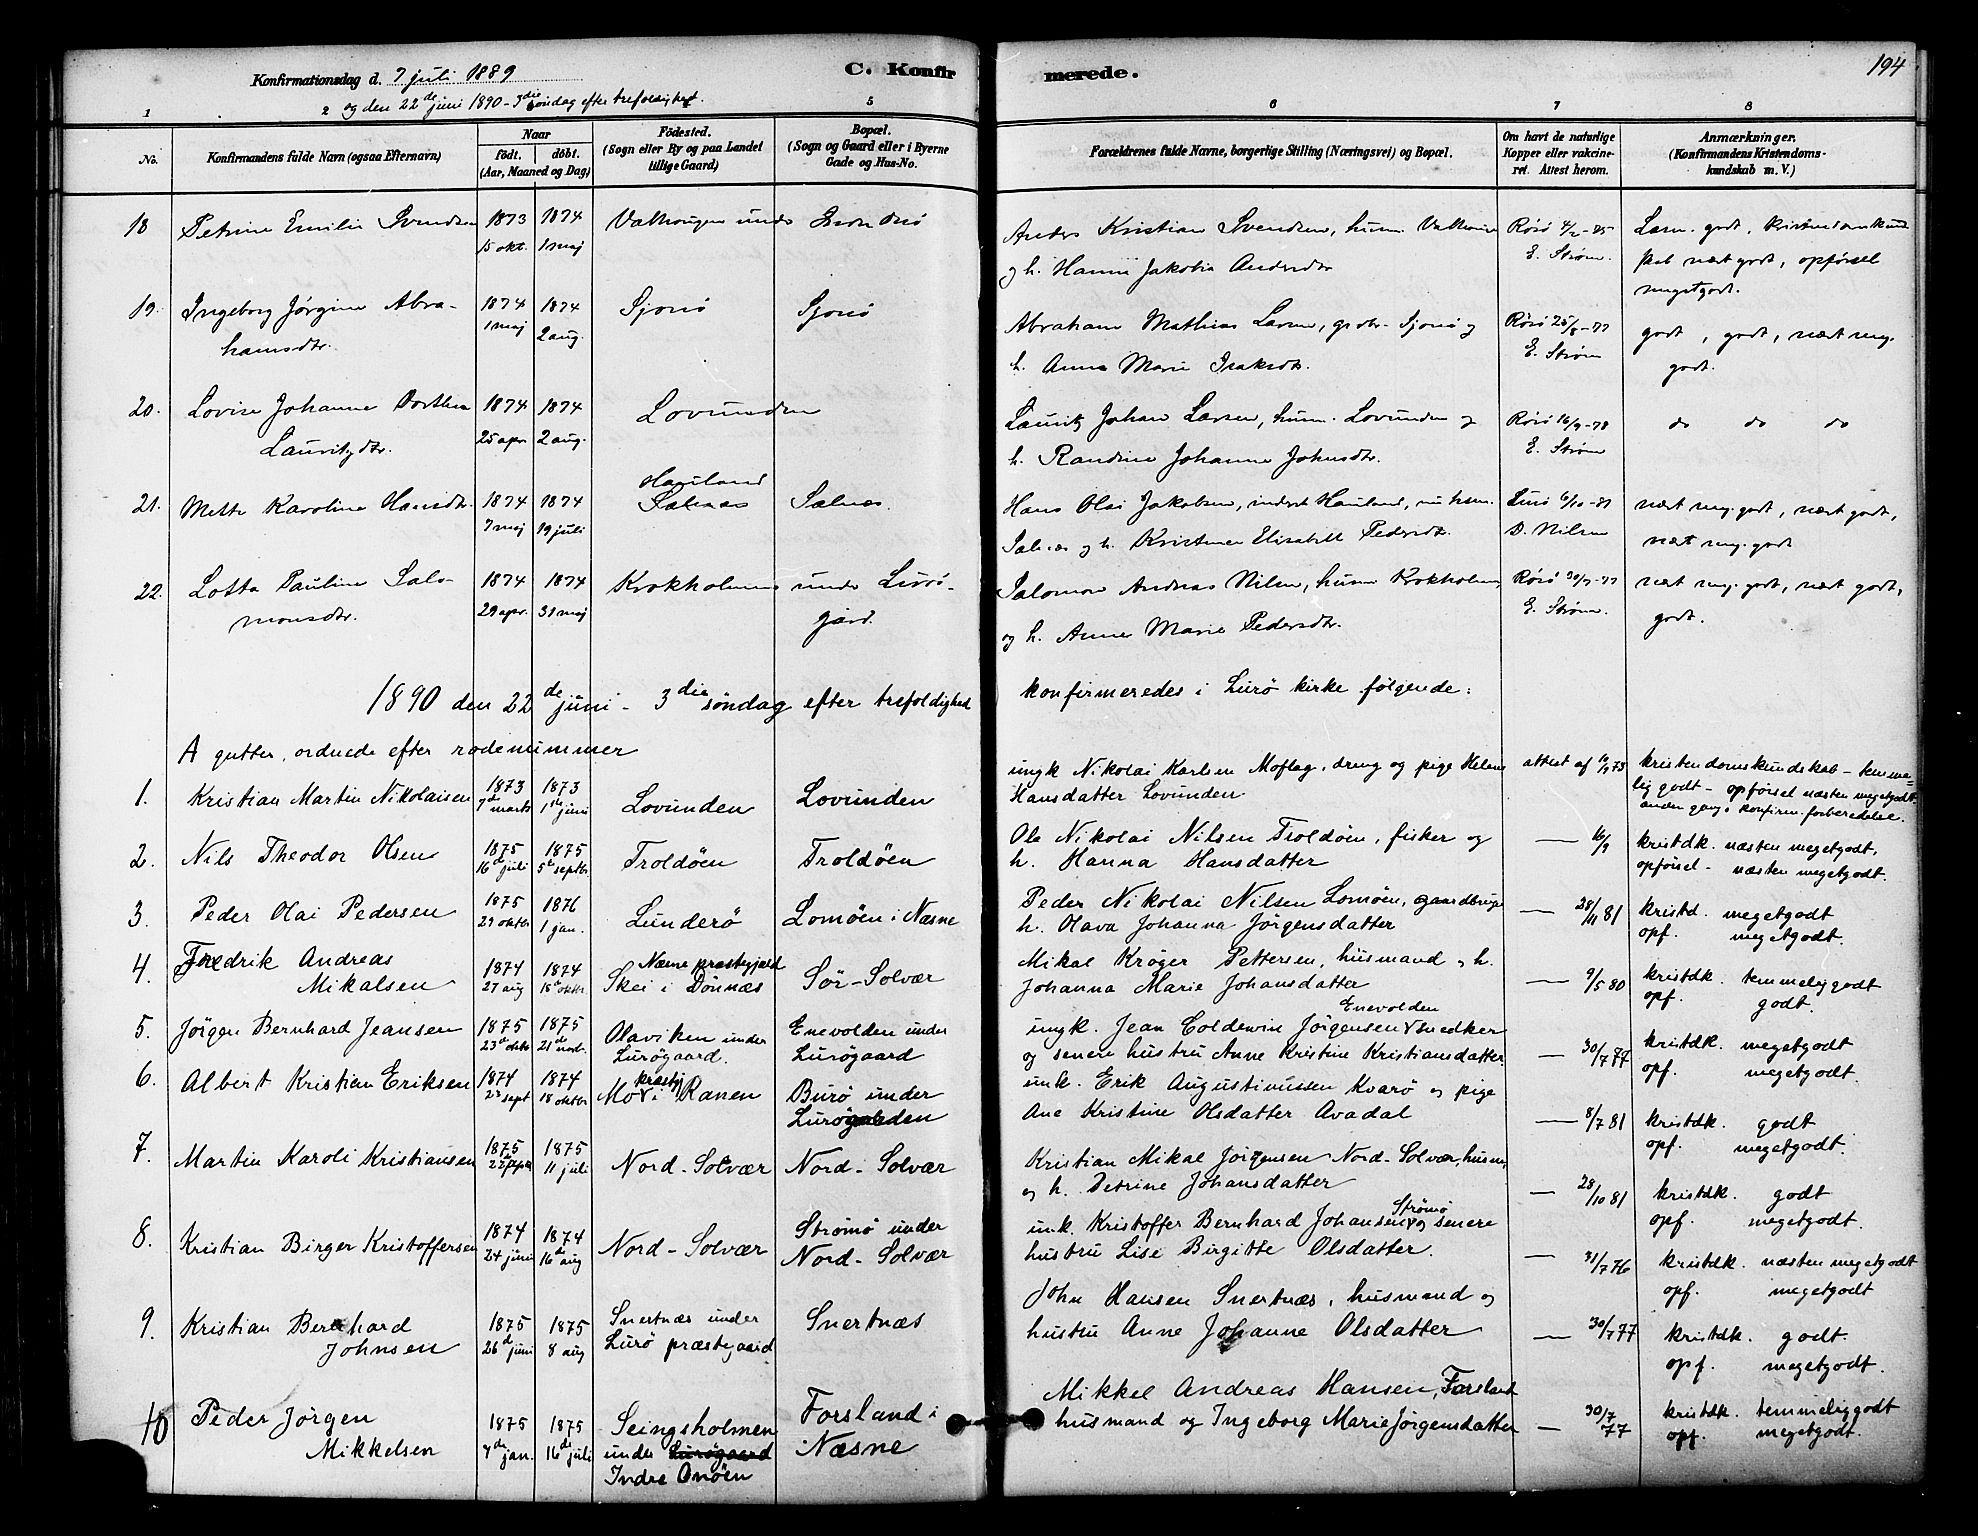 194
Konfirmationsdag d. 7 juli 1889
C. Konfirmerede.
og den 22de juni 1890 - 3die søndag efter trefoldighet.
1 2 5 6 7 8
No. Konfirmandens fulde Navn (ogsaa Efternavn) Naar født. døbt. (Aar, Maaned og Dag) Fødested. (Sogn eller By og paa Landet tillige Gaard) Bopæl. (Sogn og Gaard eller i Byerne Gade og Hus-No. Forældrenes fulde Navne, borgerlige Stilling (Næringsvei) og Bopæl. Om havt de naturlige Kopper eller vakcineret. Attest herom. Anmærkninger. (Konfirmandens Kristendomskundskab m. V.)
18 Petrine Emilie Svendsen 1873 1874 Valhaugen under
15 okt. 1 maj
Anders Kristian Svendsen, husm. Rösö 4/2-85 Læsn. godt, kristendomskund
og h. Hanna Jakobia Andersdtr E. Strøm. skab nært godt, opförsel
megetgodt.
19. Ingeborg Jørgine Abra- 1874 1874 Sjonö Sjonö
hamsdtr. 1 maj 2 aug.
Abraham Mathias Larsen, grbr. Sjonö og Rösö 25/8-77 godt, godt, nært meg.
h. Anna Marie Isaksdtr. E. Strøm godt.
20. Lovise Johanne Dorthea 1874 1874 Lovunden
Lauritzdtr. 25 apr. 2 aug.
Lauritz Johan Larsen, husm. Lovunden og Rösö 16/9-78 do do do
h. Randine Johanne Johnsdtr. E. Strøm
Hauland
21. Mette Karoline Hansdtr. 1874 1874 Salnæs Salnæs.
7 maj 19 juli
Hans Olai Jakobsen, inderst Hauland, nu husm. Lurö 6/10-81 nært meg. godt, nært godt,
Salnæs og h. Kristine Elisabeth Pedersdtr. D. Nilsen nært meg. godt
22. Lotta Pauline Salo- 1874 1874 Krokholmen under Lurö-
monsdtr. 29 apr. 31 maj gård.
Salomon Andreas Nilsen, husm Krokholmen Rösö 30/7-77 nært meg. godt, nært godt,
og h. Anne Marie Pedersdtr. E. Strøm. godt.
1890 den 22de juni - 3die søndag efter trefoldighed konfirmeredes i Lurö kirke følgende:
A gutter, ordnede efter rodenummer
1. Kristian Martin Nikolaisen 1873 1873 Lovunden Lovunden
7de marts 1ste juni
ungk Nikolai Karlsen Moflag, dreng og pige Helene attest af kristendomskundskab - temme-
Hansdatter Lovunden. lig godt - opførsel næsten megetgodt.
anden gang i konfirm. forberedelse.
2. Nils Theodor Olsen 1875 1875 Troldöen Troldöen
16de juli 5te septbr
Ole Nikolai Nilsen Troldöen, fisker og — 16/9 kristdk. næsten megetgodt,
h. Hanna Hansdatter opførsel - næsten megetgodt.
3. Peder Olai Pedersen 1875 1876 Lunderö Lomöen i Næsne
29 oktbr 1 jan.
Peder Nikolai Nilsen Lomöen, gaardbruger — 28/11 81 kristd. megetgodt
h. Olava Johanna Jörgensdatter opf. megetgodt.
4. Fredrik Andreas 1874 1874 Næsne præstegjæld
Mikalsen 27 aug 18de oktbr. Skei i Dönnæs Sör-Solvær
Mikal Kröger Pettersen, husmand og h. — 9/5 80 kristdk. temmelig godt
Johanna Marie Johansdatter opf. godt.
5. Jörgen Bernhard Jeansen 1875 1875 Olaviken under Enevolden under
23de oktbr 21de novb. Lurögaard. Lurögaard
Enevolden
ungk. Jean Coldewin Jörgensen snedker kristdk. megetgodt
og senere hustru Anne Kristine Kristiansdatter. — 30/7 77 opf. megetgodt.
6. Albert Kristian Eriksen 1874 1874 Mo præstgj i Ranen Burö under
23 sept 18 oktbr Lurögaarden
unk. Erik Augustinussen Kvarö og pige
Ane Kristine Olsdatter Avadal — 8/7 81 kristdk. godt
opf. megetgodt.
7. Martin Karoli Kristiansen 1875 1875 Nord-Solvær Nord-Solvær
11 juli
Kristian Mikal Jörgensen Nord-Solvær, husm.
og h. Petrine Johansdatter — 28/10 81 kristdk. godt
opf. megetgodt.
8. Kristian Birger Kristoffersen 1874 1874 Nord-Solvær Strömö under
24 juni 16de aug Nord-Solvær
Strömö
unk. Kristoffer Bernhard Johansen og senere
hustru Lise Birgitte Olsdatter. — 31/7 76 kristdk. næsten megetgodt
opf. megetgodt
9. Kristian Bernhard 1875 1875 Snertnæs under Snertnæs
Johnsen 26de juni 8 aug Lurö præstegaard
John Hansen Snertnæs, husmand og
hustru Anne Johanne Olsdatter — 30/7 77 kristdk. godt.
opf. megetgodt.
10 Peder Jörgen 1875 1875 Seingsholmen Forsland i
Mikkelsen 7de jan. 16de juli under Lurögaard Næsne
Indre Onöen
Mikkel Andreas Hansen, Forsland kristdk. temmelig godt
husmand og Ingeborg Marie Jörgensdatter — 30/7 77 opf. megetgodt.